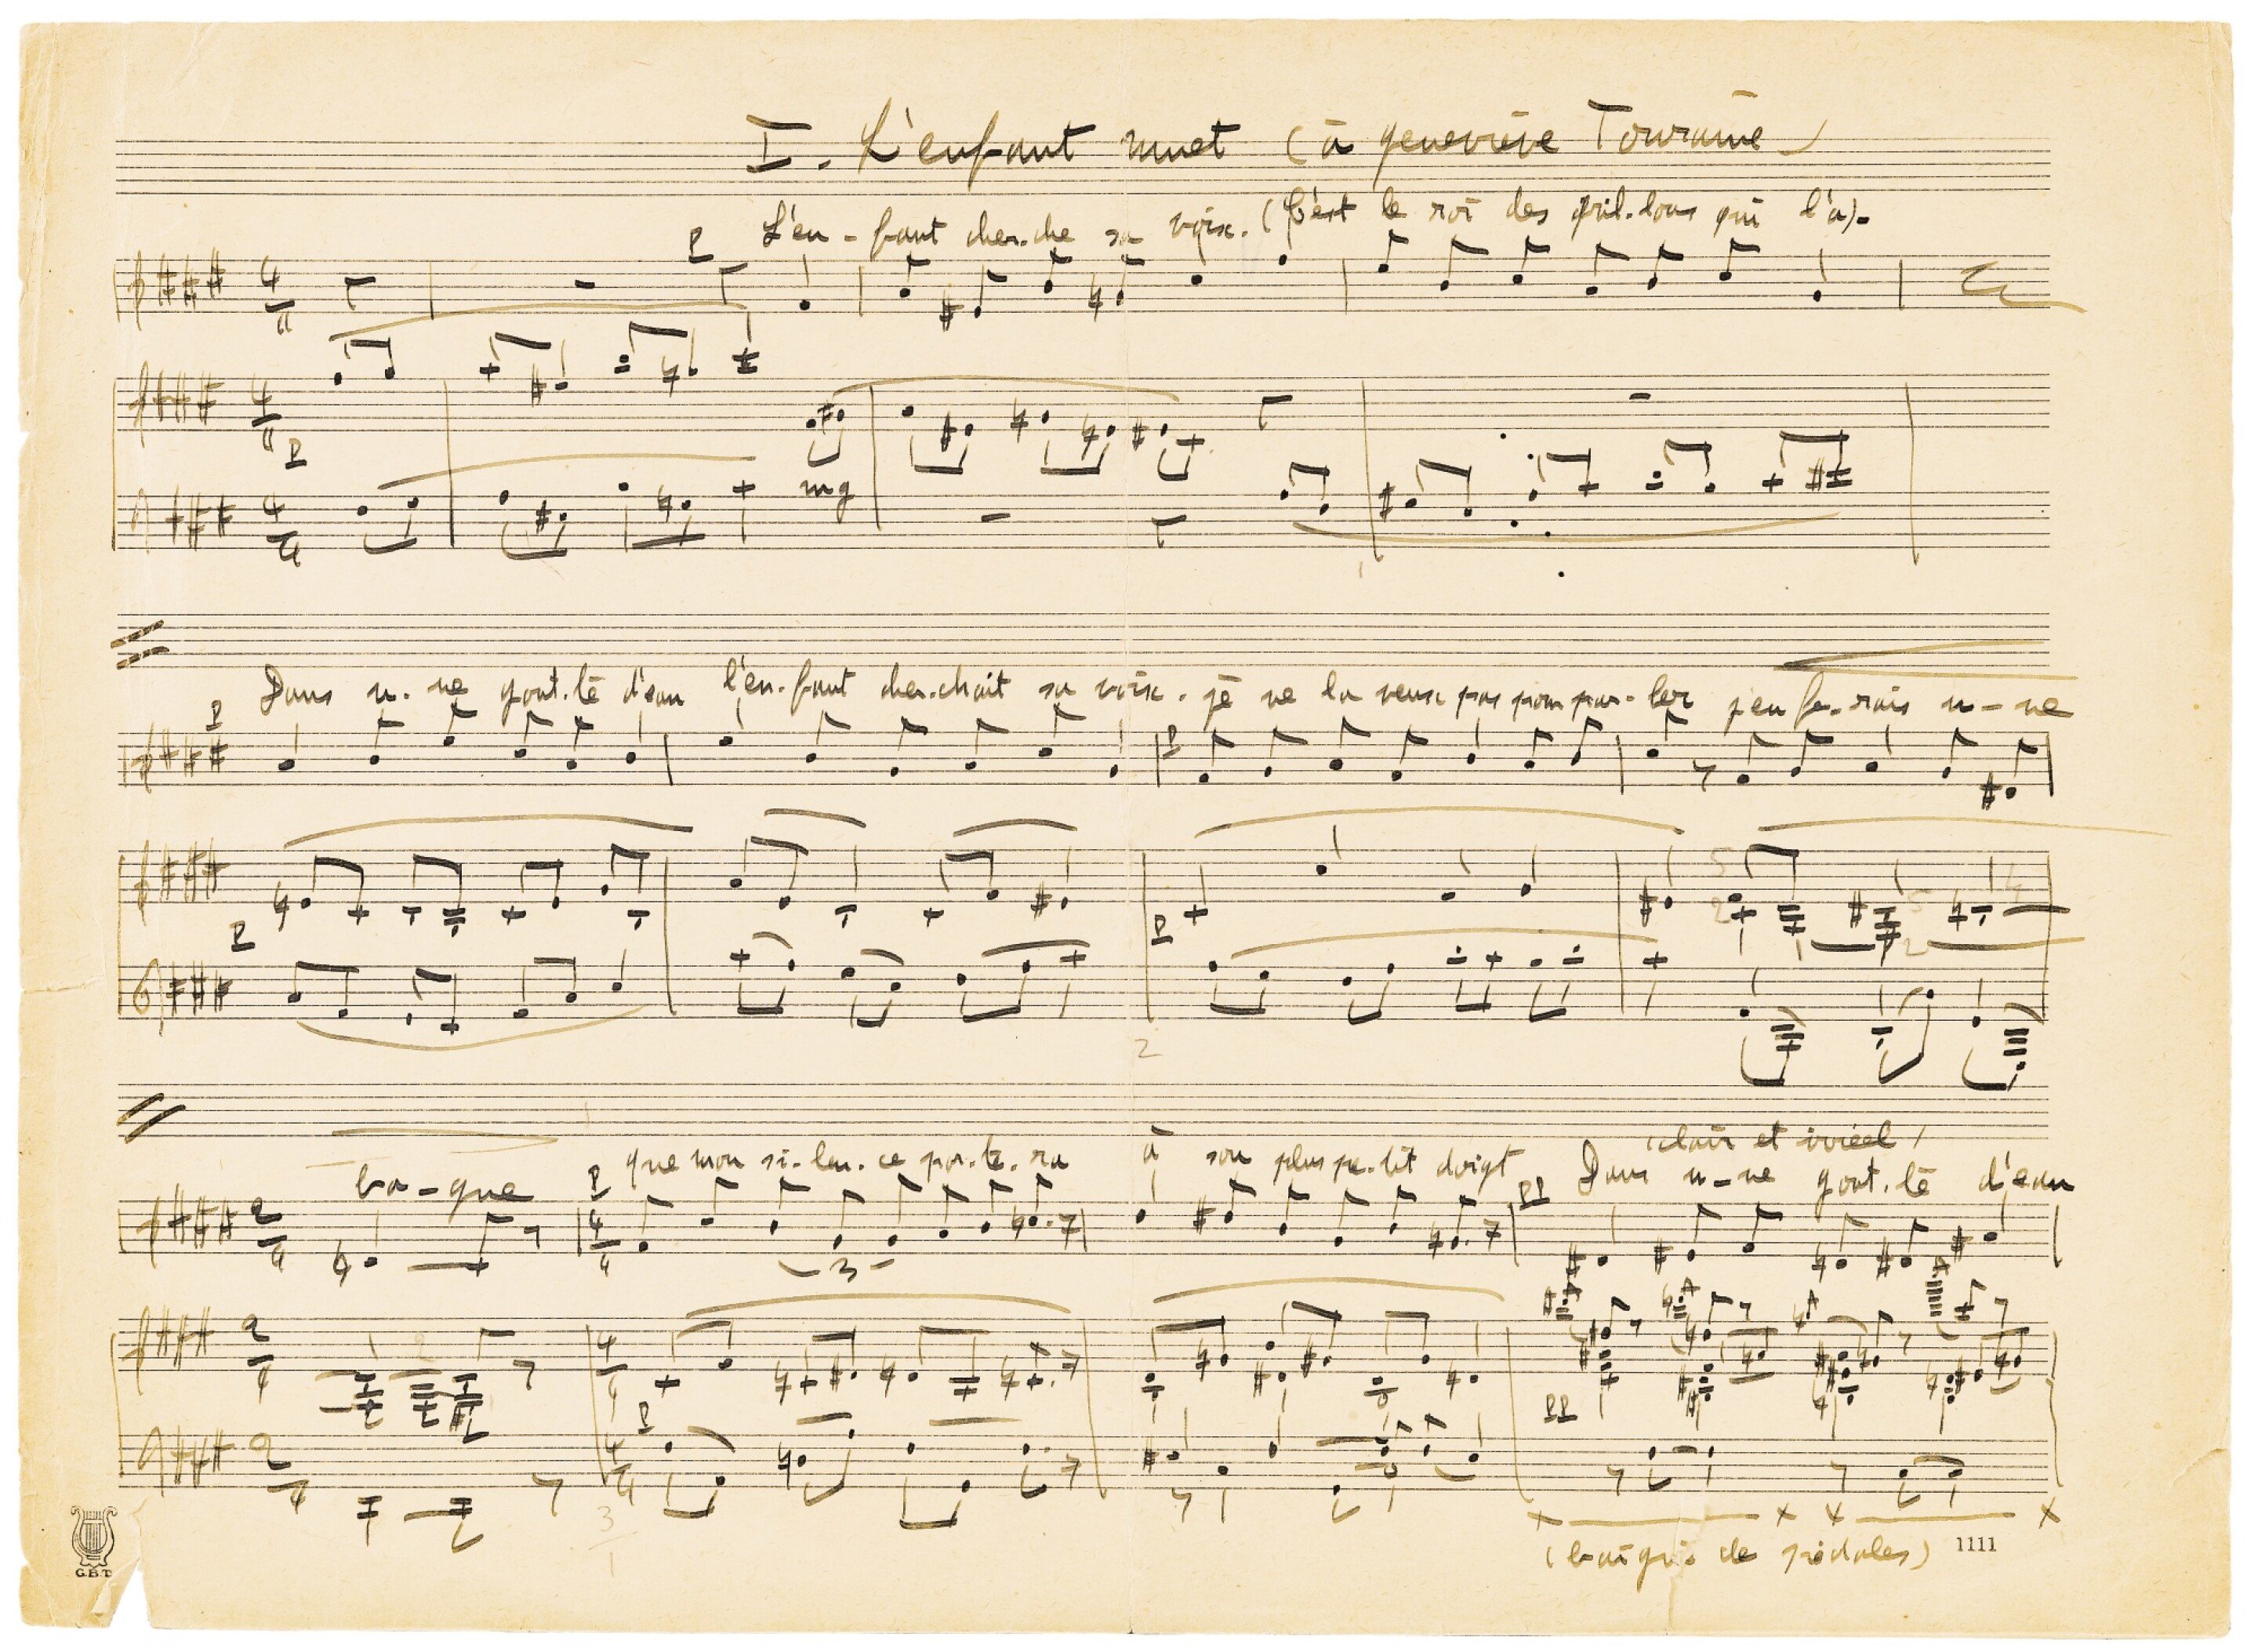 I. L'enfant muet (à geneviève Touraine)
L'en-fant cher-che sa voix. (C'est le roi des gril-lons qui l'a)-
mg
Dans u-ne gout-te d'eau l'en-fant cher-chait sa voix. je ne la veux pas pour par-ler j'en fe-rais u-ne
2
(clair et irréel)
ba-gue que mon si-len-ce por-te-ra à son plus pe-tit doigt Dans u-ne gout-te d'eau
3
(baigné de pédales) 1111
G.B.T